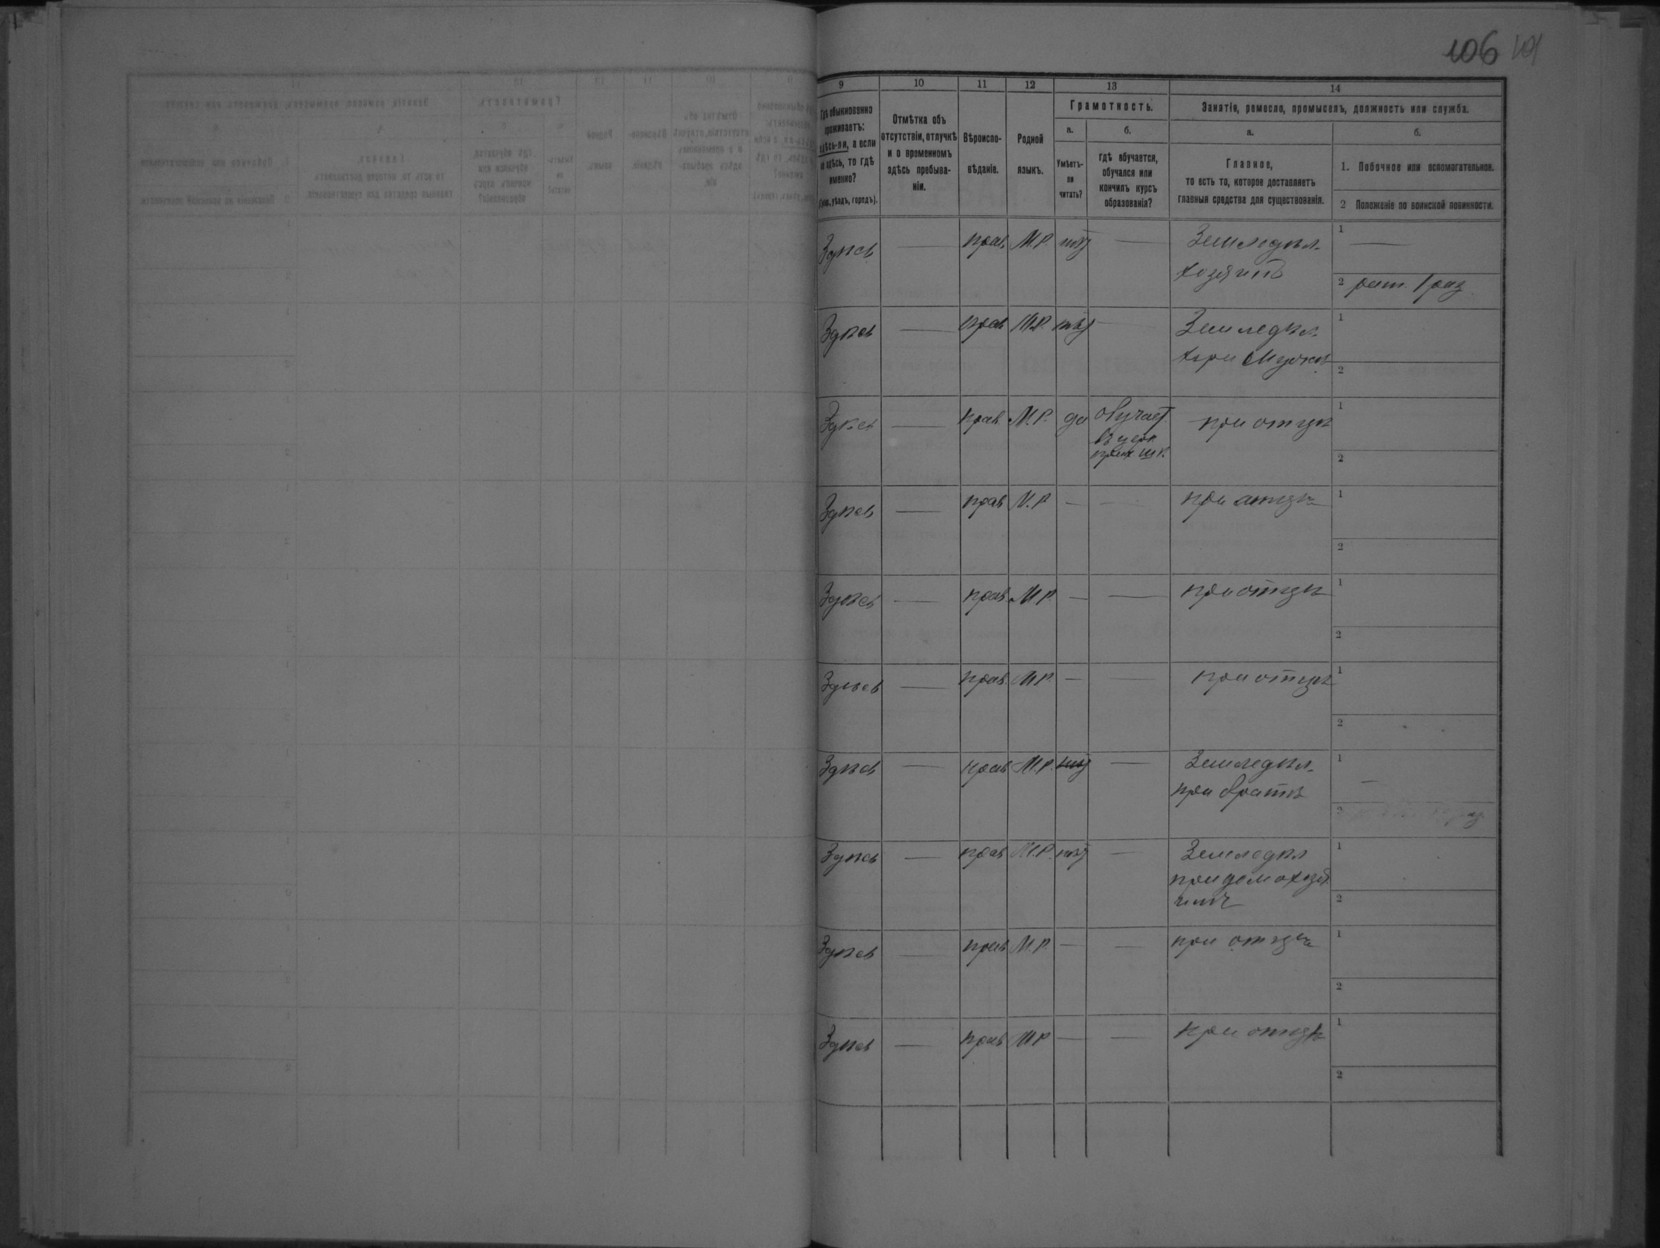 106 101
9 10 11 12 13 14
Гдѣ обыкновенно
проживаетъ:
здѣсь-ли, а если
не здѣсь, то гдѣ
именно?
(Губ., уѣздъ, городъ).
Отмѣтка объ
отсутствіи, отлучкѣ
и о временномъ
здѣсь пребыва-
ніи.
Вѣроиспо-
вѣданіе.
Родной
языкъ.
Грамотность.
а.
Умѣетъ-
ли
читать?
б.
гдѣ обучается,
обучался или
кончилъ курсъ
образованія?
Занятіе, ремесло, промыселъ, должность или служба.
а.
Главное,
то есть то, которое доставляетъ
главныя средства для существованія.
б.
1. Побочное или вспомогательное.
2 Положеніе по воинской повинности.
Здѣсь — прав М.Р. нѣт — Земледѣл.
хозяинъ
1 —
2 рат. 1 раз
Здѣсь — прав М.Р. нѣт — Земледѣл.
при мужѣ
1
2
Здѣсь — прав М.Р. да обучает
въ церк
прих шк.
при отцѣ
1
2
Здѣсь — прав М.Р — — при отцѣ
1
2
Здѣсь — прав М.Р. — — при отцѣ
1
2
Здѣсь — прав М.Р — — при отцѣ
1
2
Здѣсь — прав М.Р. нѣт — Земледѣл.
при братѣ
1 —
2
Здѣсь — прав М.Р. нѣт — Земледѣл
при домохозя
инѣ
1
2
Здѣсь — прав М.Р. — — при отцѣ
1
2
Здѣсь — прав М.Р — — при отцѣ
1
2